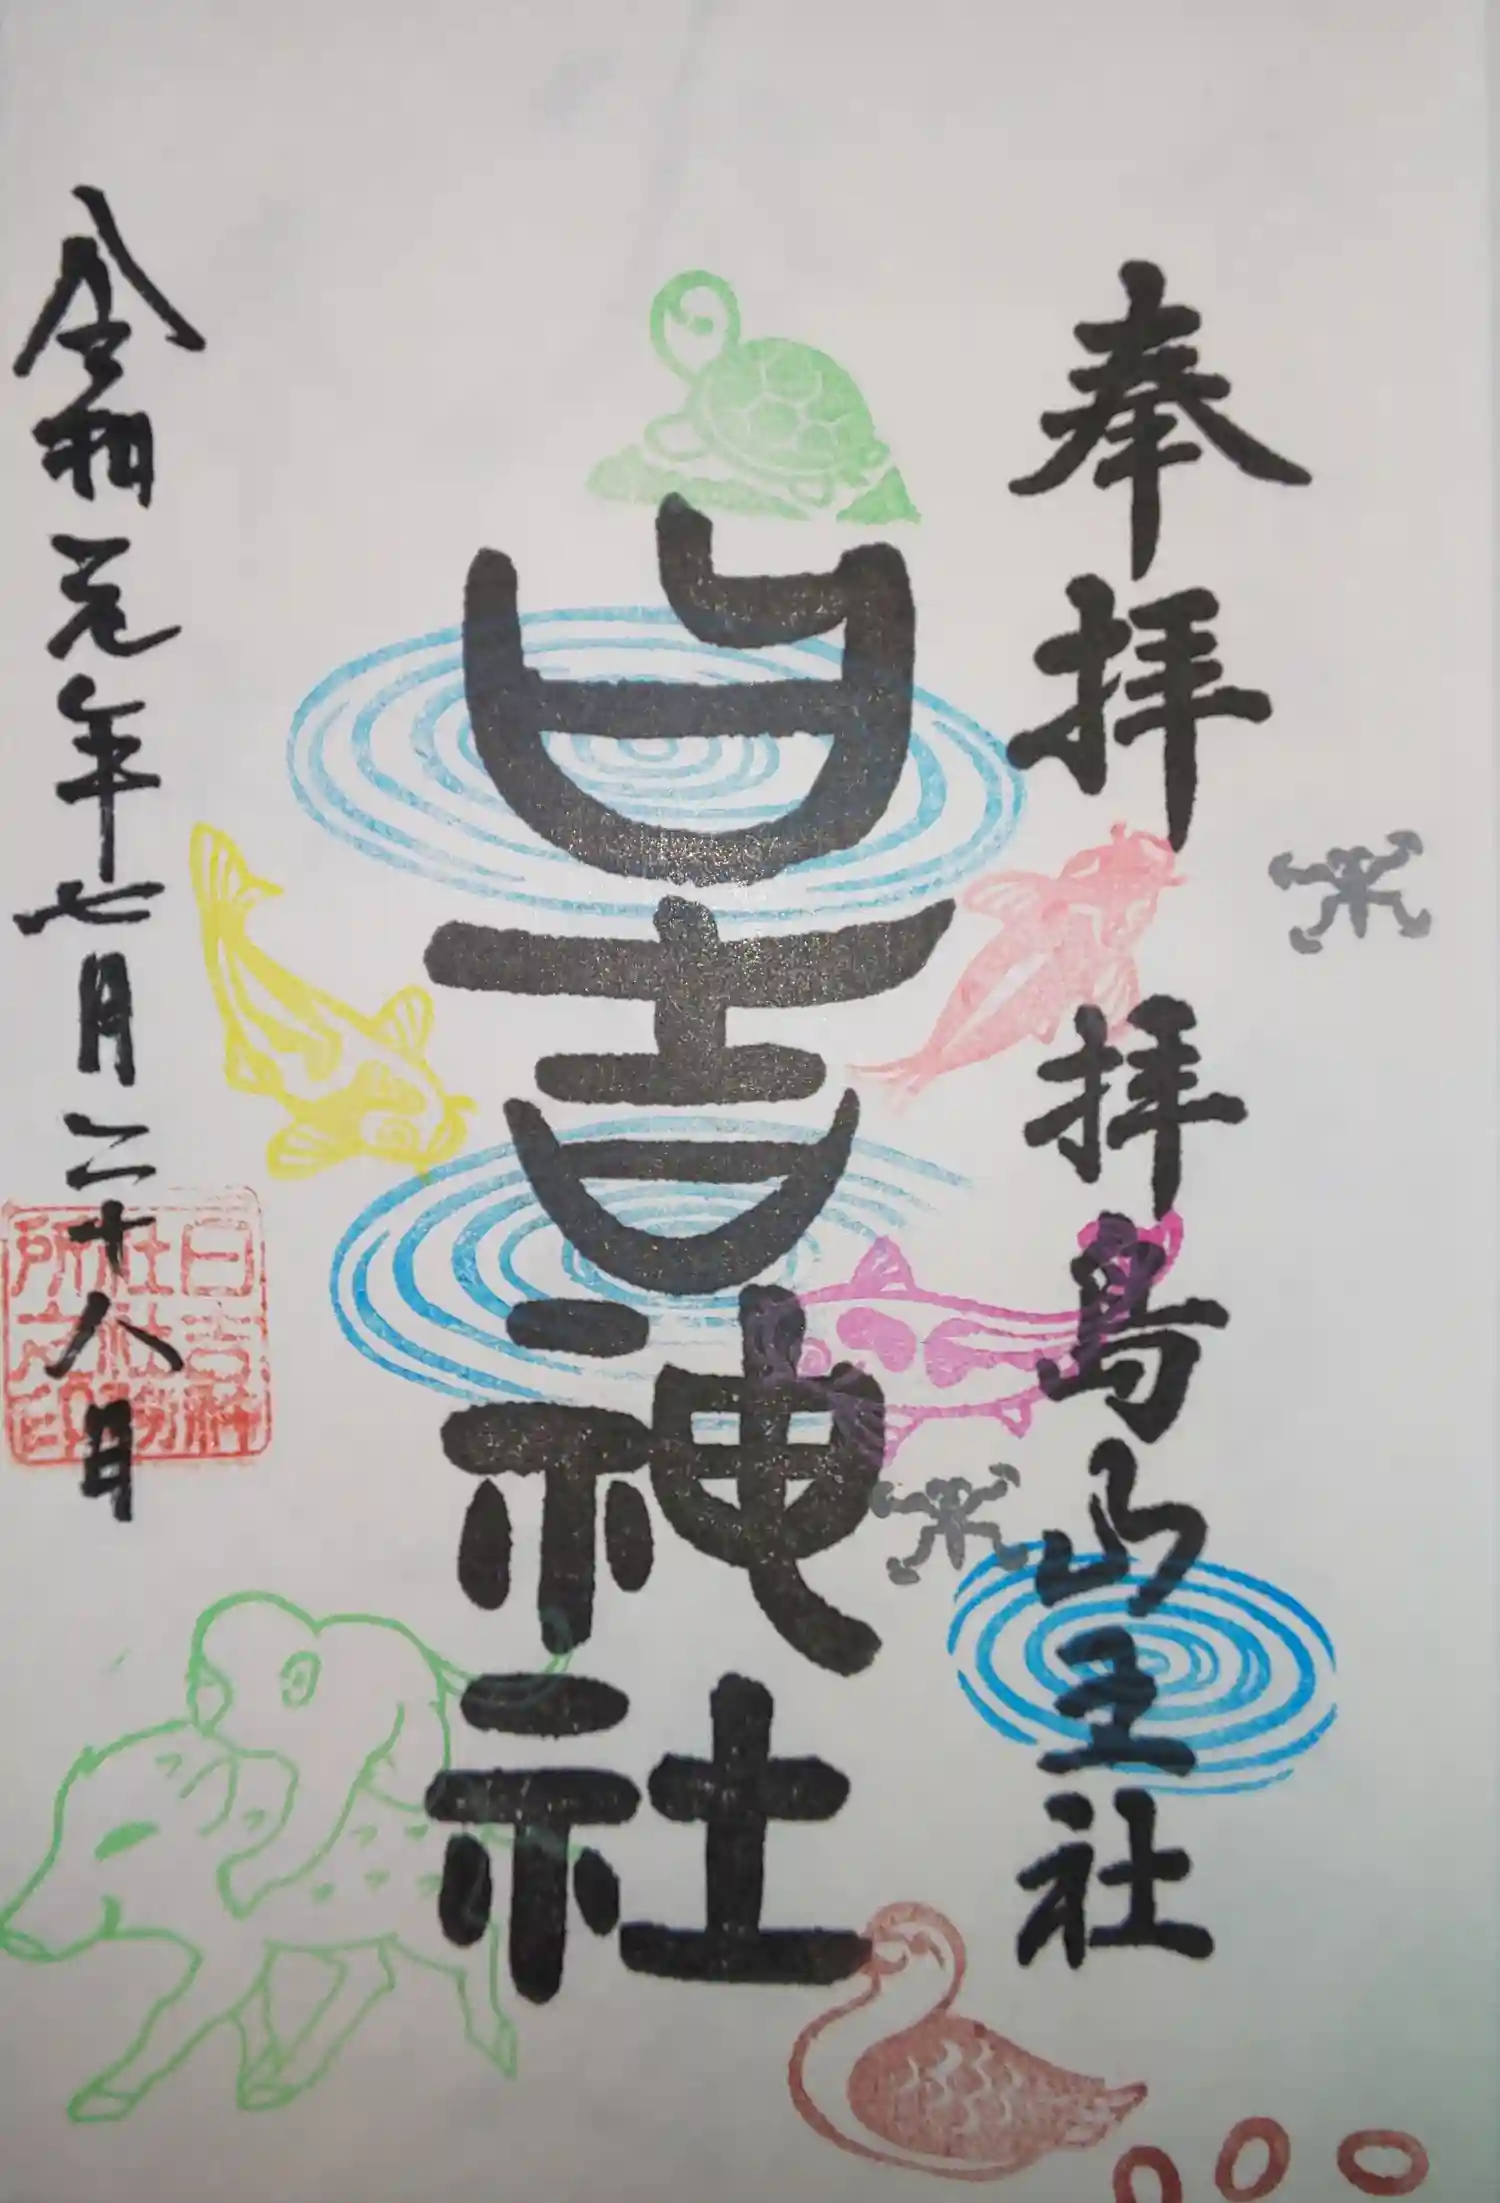 奉拝 拝島山王社
日吉神社
令和元年七月二十八日
日吉神
社社務
所之印